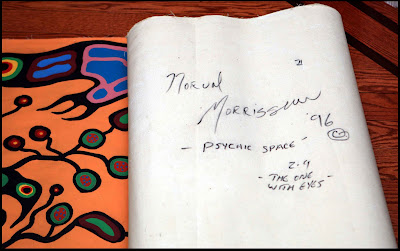 Norval
Morrisseau
'96
- PSYCHIC SPACE -
2.9
- THE ONE
WITH EYES -